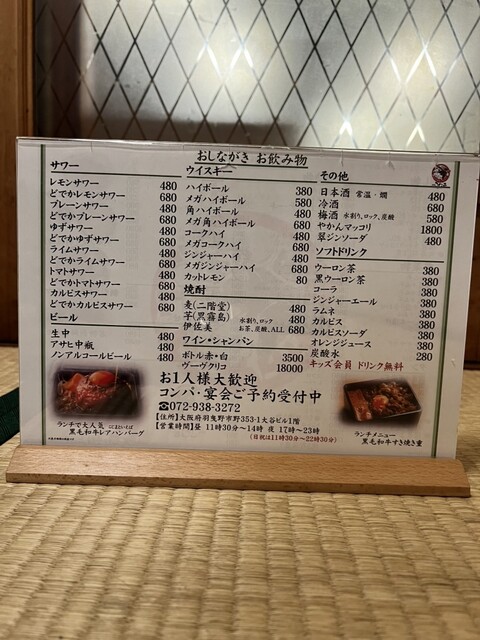 おしながき お飲み物
サワー
レモンサワー 480
どでかレモンサワー 680
プレーンサワー 480
どでかプレーンサワー 680
ゆずサワー 480
どでかゆずサワー 680
ライムサワー 480
どでかライムサワー 680
トマトサワー 480
どでかトマトサワー 680
カルピスサワー 480
どでかカルピスサワー 680
ビール
生中 480
アサヒ中瓶 480
ノンアルコールビール 480
ウイスキー
ハイボール 380
メガハイボール 580
角ハイボール 480
メガ角ハイボール 680
コークハイ 480
メガコークハイ 680
ジンジャーハイ 480
メガジンジャーハイ 680
カットレモン 80
焼酎
麦(二階堂) 480
芋(黒霧島) 水割り、ロック 480
伊佐美 お茶、炭酸、ALL 680
ワイン・シャンパン
ボトル赤・白 3500
ヴーヴクリコ 18000
その他
日本酒 常温・燗 480
冷酒 680
梅酒 水割り、ロック、炭酸 580
やかんマッコリ 980
翠ジンソーダ 480
ソフトドリンク
ウーロン茶 380
黒ウーロン茶 380
コーラ 380
ジンジャーエール 380
ラムネ 380
カルピス 380
カルピスソーダ 380
オレンジジュース 380
炭酸水 280
キッズ会員 ドリンク無料
お1人様大歓迎
コンパ・宴会ご予約受付中
☎072-938-3272
【住所】大阪府羽曳野市野353-1大谷ビル1階
【営業時間】昼 11時30分〜14時 夜 17時〜23時
(日祝は11時30分〜22時30分)
ランチで大人気
黒毛和牛レアハンバーグ
ランチメニュー
黒毛和牛すき焼き重